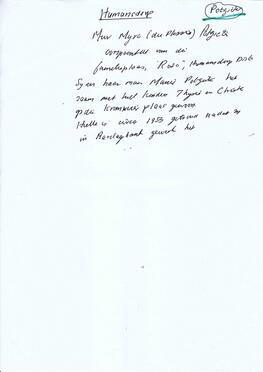 Humansdorp
Potgieter
Mev Myra (du Plessis) Potgieter
van die
familieplaas, 'Rosa', Humansdorp Dist.
Sy en haar man Manie Potgieter het
saam met hul kinders en
op die plaas gewoon.
Hulle is circa 1953 getroud nadat sy
in Barclaysbank gewerk het